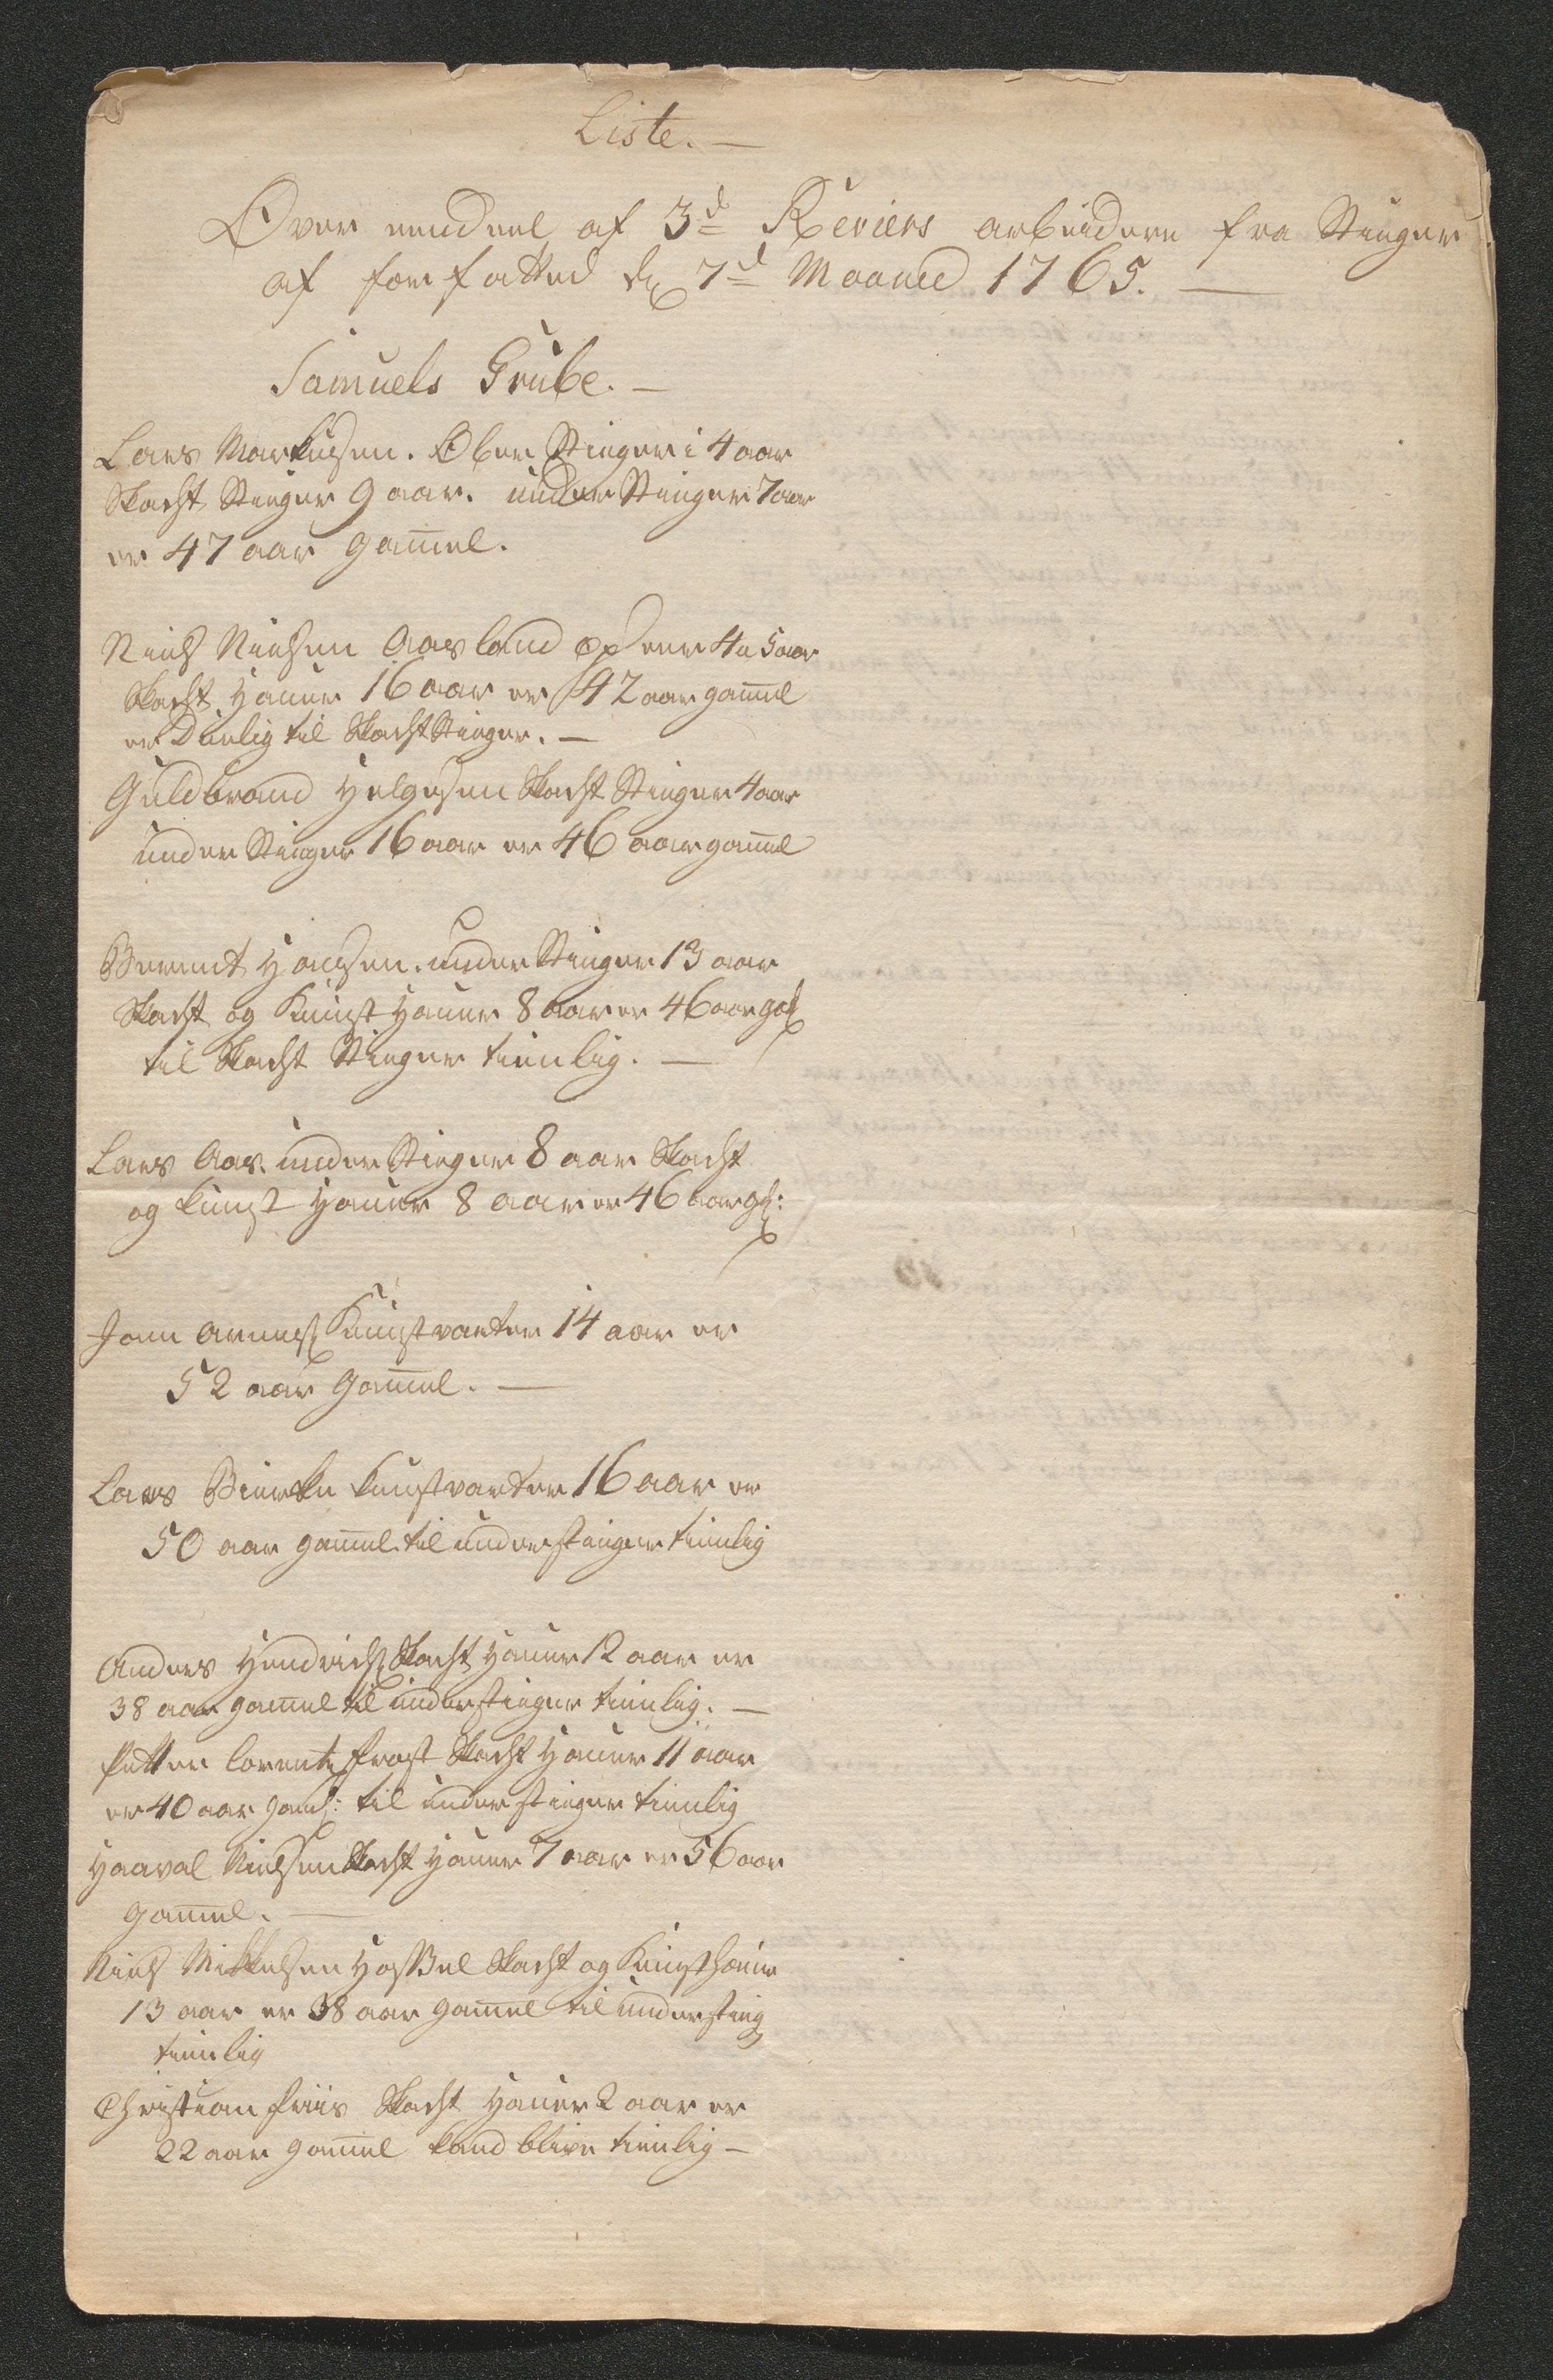 Liste. —
Over eendeel af 3d Reviers arbeidere fra Stiiger
af forfatted d: 7d Maaned 1765. —
Samuels Grube. —
Lars Markusen. Ober Stiiger i 4 aar
Skacht Stiiger 9 aar. under Stiiger 7 aar
er 47 aar gam̄el.
Niels Nielsen Aasland 4 a 5 aar
Skacht Hauer 16 aar er 42 aar gam̄el
er Duelig til Skacht Stiiger. —
Guldbrand Helgesen Skacht Stiiger 4 aar
under Stiiger 16 aar er 46 aar gam̄el
Berent Hansen. under Stiiger 13 aar
Skacht og Kunst Hauer 8 aar er 46 aar gal
til Skacht Stiiger tienlig. —
Lars Aas. under Stiiger 8 aar Skacht
og kunst Hauer 8 aar er 46 aar gl:
Joen Arnes Kunstvarter 14 aar er
52 aar gam̄el. —
Lars Bierke kunstvarter 16 aar er
50 aar gam̄el til understiiger tienlig
Anders Hendrichs Skacht Hauer 12 aar er
38 aar gam̄el til understiiger tienlig. —
Petter Lorentz Frost Skacht Hauer 11 aar
er 40 aar gaml: til understiiger tienlig
Haaval Nielsen Skacht Hauer 7 aar er 56 aar
gam̄el. —
Niels Mikkelsen Skacht og Kunsthauer
13 aar er 38 aar gam̄el til understiig
tienlig
Christian Friis Skacht Hauer 2 aar er
22 aar gam̄el kand blive tienlig —